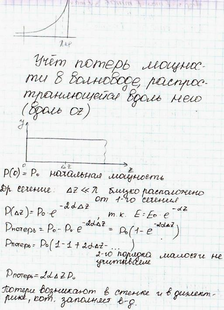 Учёт потерь мощнос-
ти в волноводе, распрос-
траняющейся вдоль него
(вдоль oz)
y
1
Δz
z
P(0) = P₀ начальная мощность
Др. сечение. Δz ≪ λ близко расположено
от 1-го сечения
P(Δz) = P₀ e^(-2αΔz) т.к. E = E₀ e^(-αz)
Pпотерь = P₀ - P₀ e^(-2αΔz) = P₀(1 - e^(-2αΔz))
Pпотерь = P₀(1-1+2αΔz-...)
2-го порядка малости не
учитываем
Pпотерь = 2αΔz P₀
Потери возникают в стенке и в диэлект-
рике, кот. заполняет в-д.